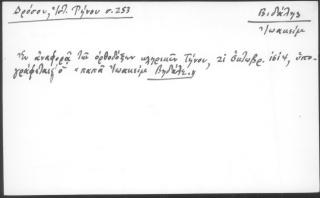 Δρόσου, Ἱστ. Τήνου σ. 253
Βιδάλης
Ἰωακείμ
Ἐν ἀναφορᾷ τῶν ὀρθοδόξων κληρικῶν Τήνου, 21 ὀκτωβρ. 1614, ὑπο-
γράφεται ὁ "παπᾶ Ἰωακείμ Βιδάλης"